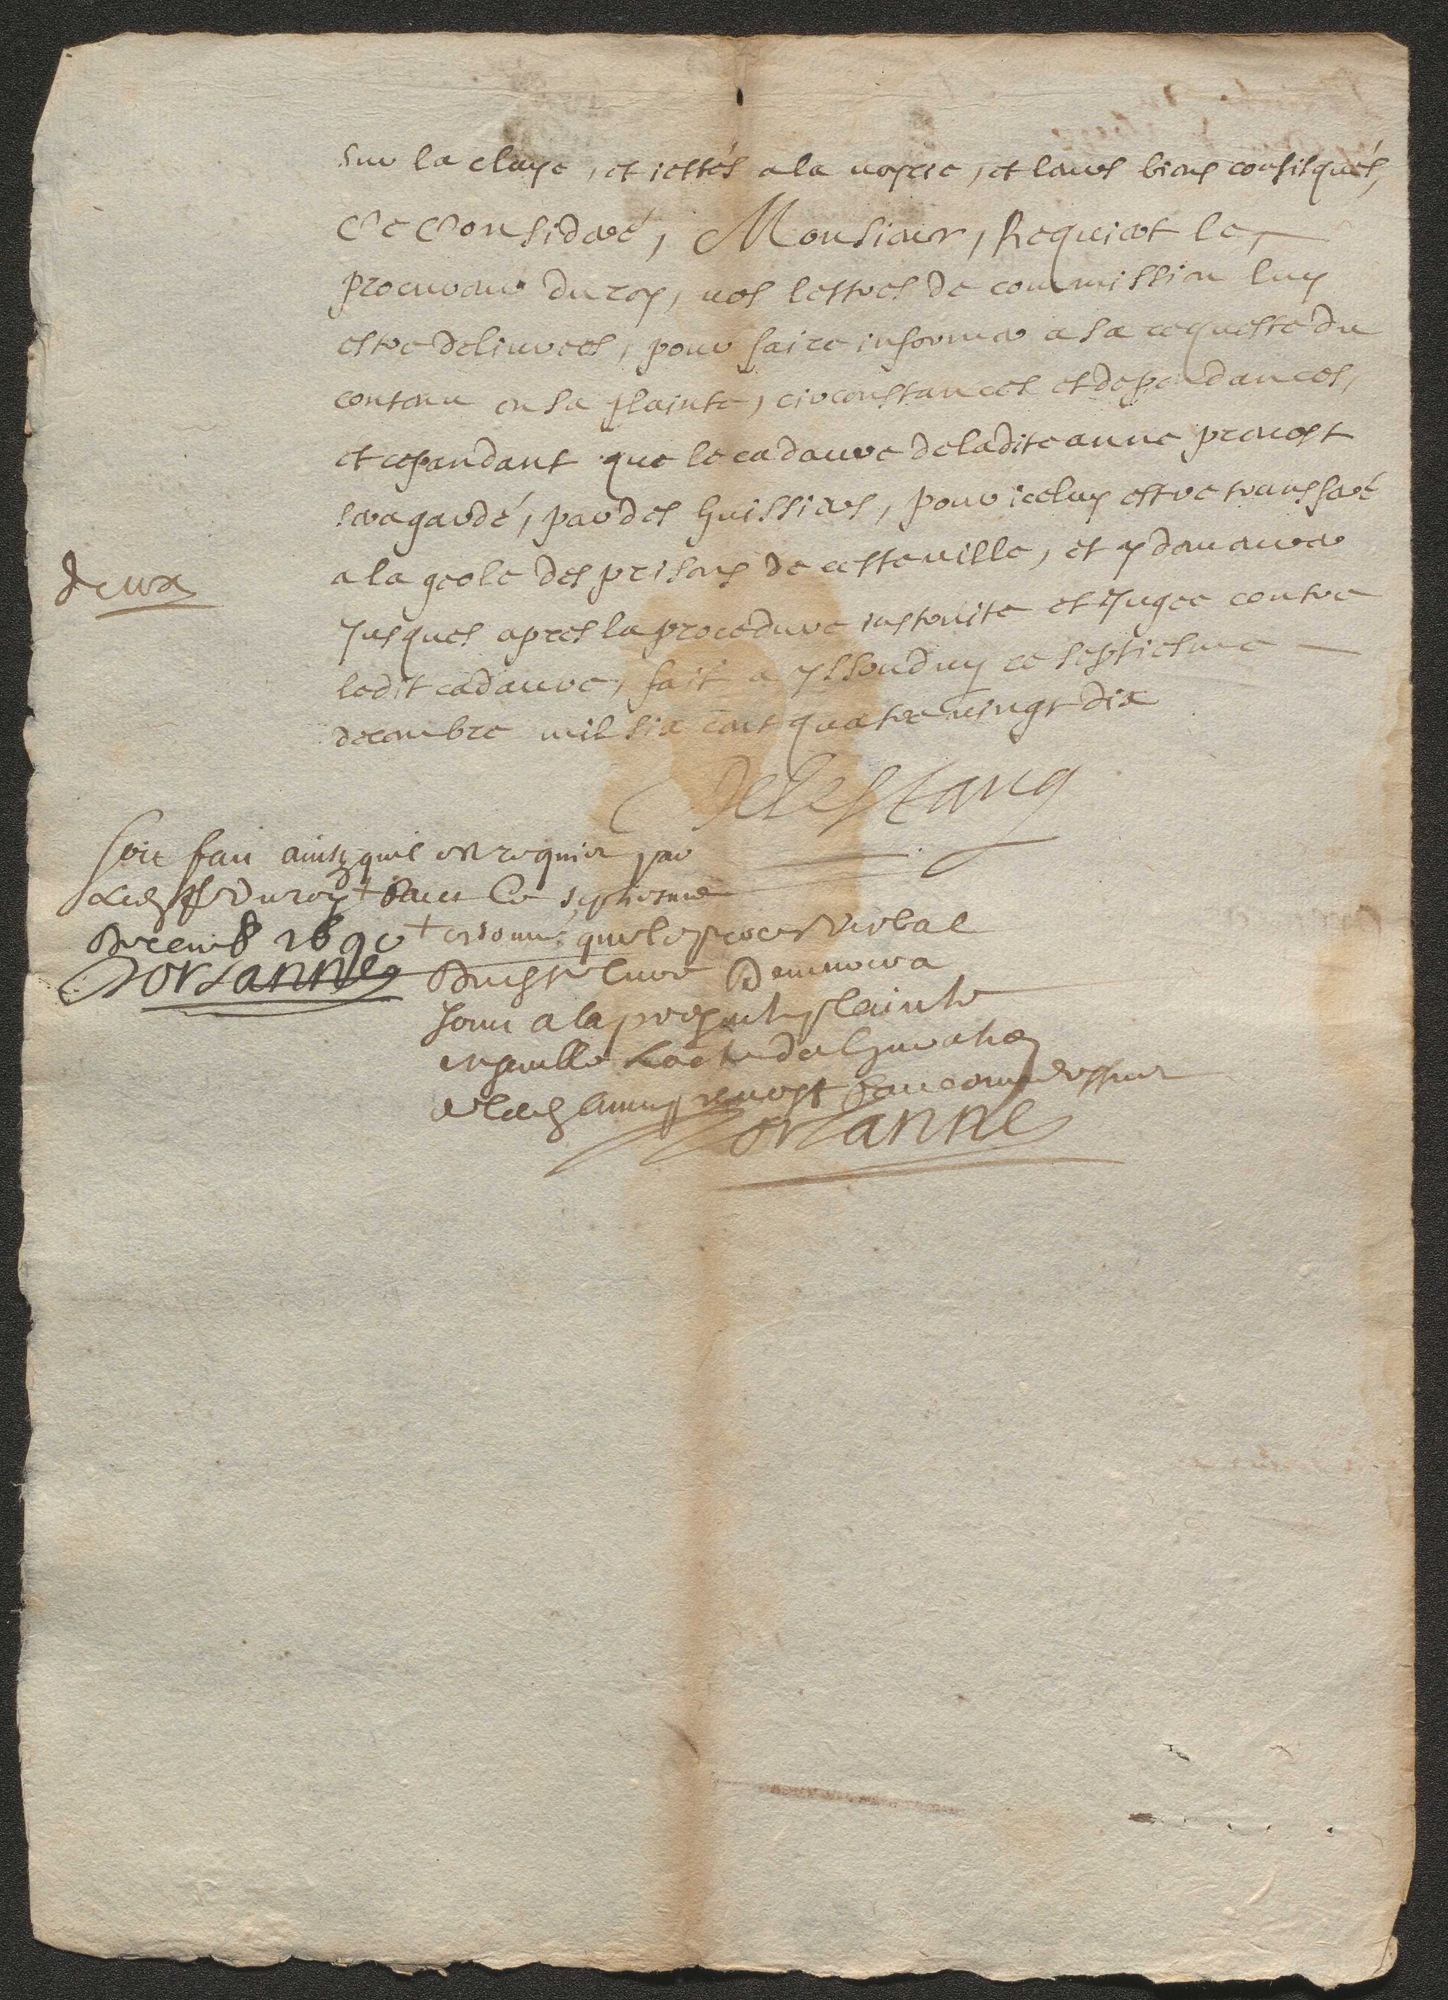 sur la claye, et jettés a la voyrie, et leurs biens confisqués,
Ce Consideré, Monsieur, Requiert le
procureur du roy, vos lettres de commission luy
estre delivrees, pour faire informer a sa requeste du
contenu en sa plainte, circonstances et dependances,
et cependant que le cadavre de ladite anne prevost
sera gardé, par des huissiers, pour iceluy estre transferé
a la geole des prisons de cette ville, et y demeurer
deux
Jusques apres la procedure instruite et Jugee contre
ledit cadavre, fait a yssoudun ce septiesme
decembre mil six cent quatre vingt dix
Delestang
Soit fait ainsy quil est requier par
du roy + ce septiesme
Decemb 1690
Dorsanne
+ ordonne que le proces verbal
Demeurera
Joint a la presente plainte
ensemble
prevost dessus
Dorsanne